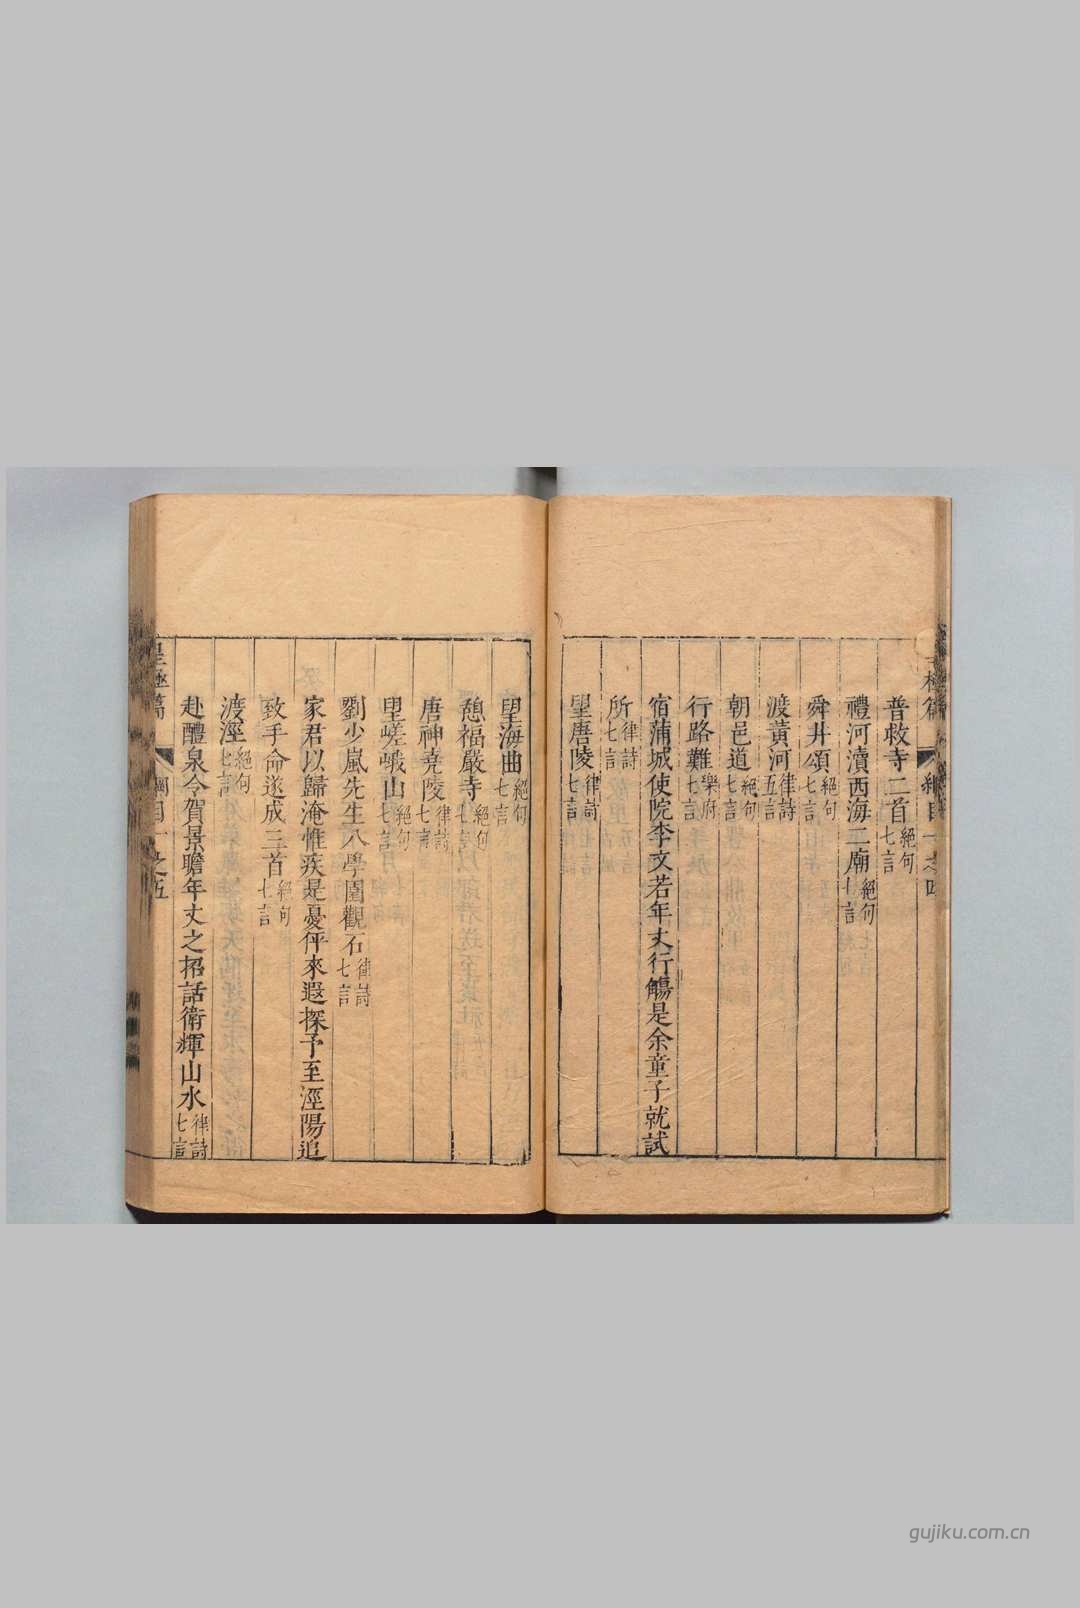 皇極篇 綱目一之四
普救寺二首 七言絕句
禮河瀆西海二廟 七言絕句
舜井頌 七言絕句
渡黃河 五言律詩
朝邑道 七言絕句
行路難 七言樂府
宿蒲城使院李文若年丈行觴是余童子就試
所 七言律詩
望唐陵 七言律詩
望海曲 七言絕句
憩福嚴寺 七言絕句
唐神堯陵 七言律詩
望嵯峨山 七言絕句
劉少嵐先生入學圃觀石 七言律詩
家君以歸淹惟疾是憂伻來遐探予至涇陽追
致手命遂成三首 七言絕句
渡涇 七言絕句
赴醴泉令賀景瞻年丈之招話衛輝山水 七言律詩
皇極篇 綱目一之五
gujiku.com.cn